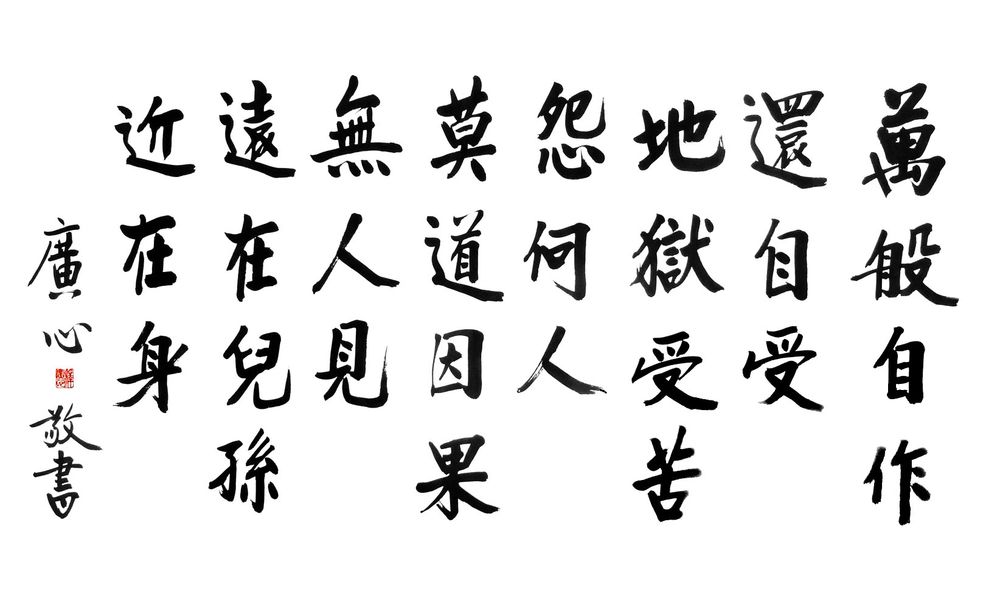 萬般自作
還自受
地獄受苦
怨何人
莫道因果
無人見
遠在兒孫
近在身
廣心 敬書